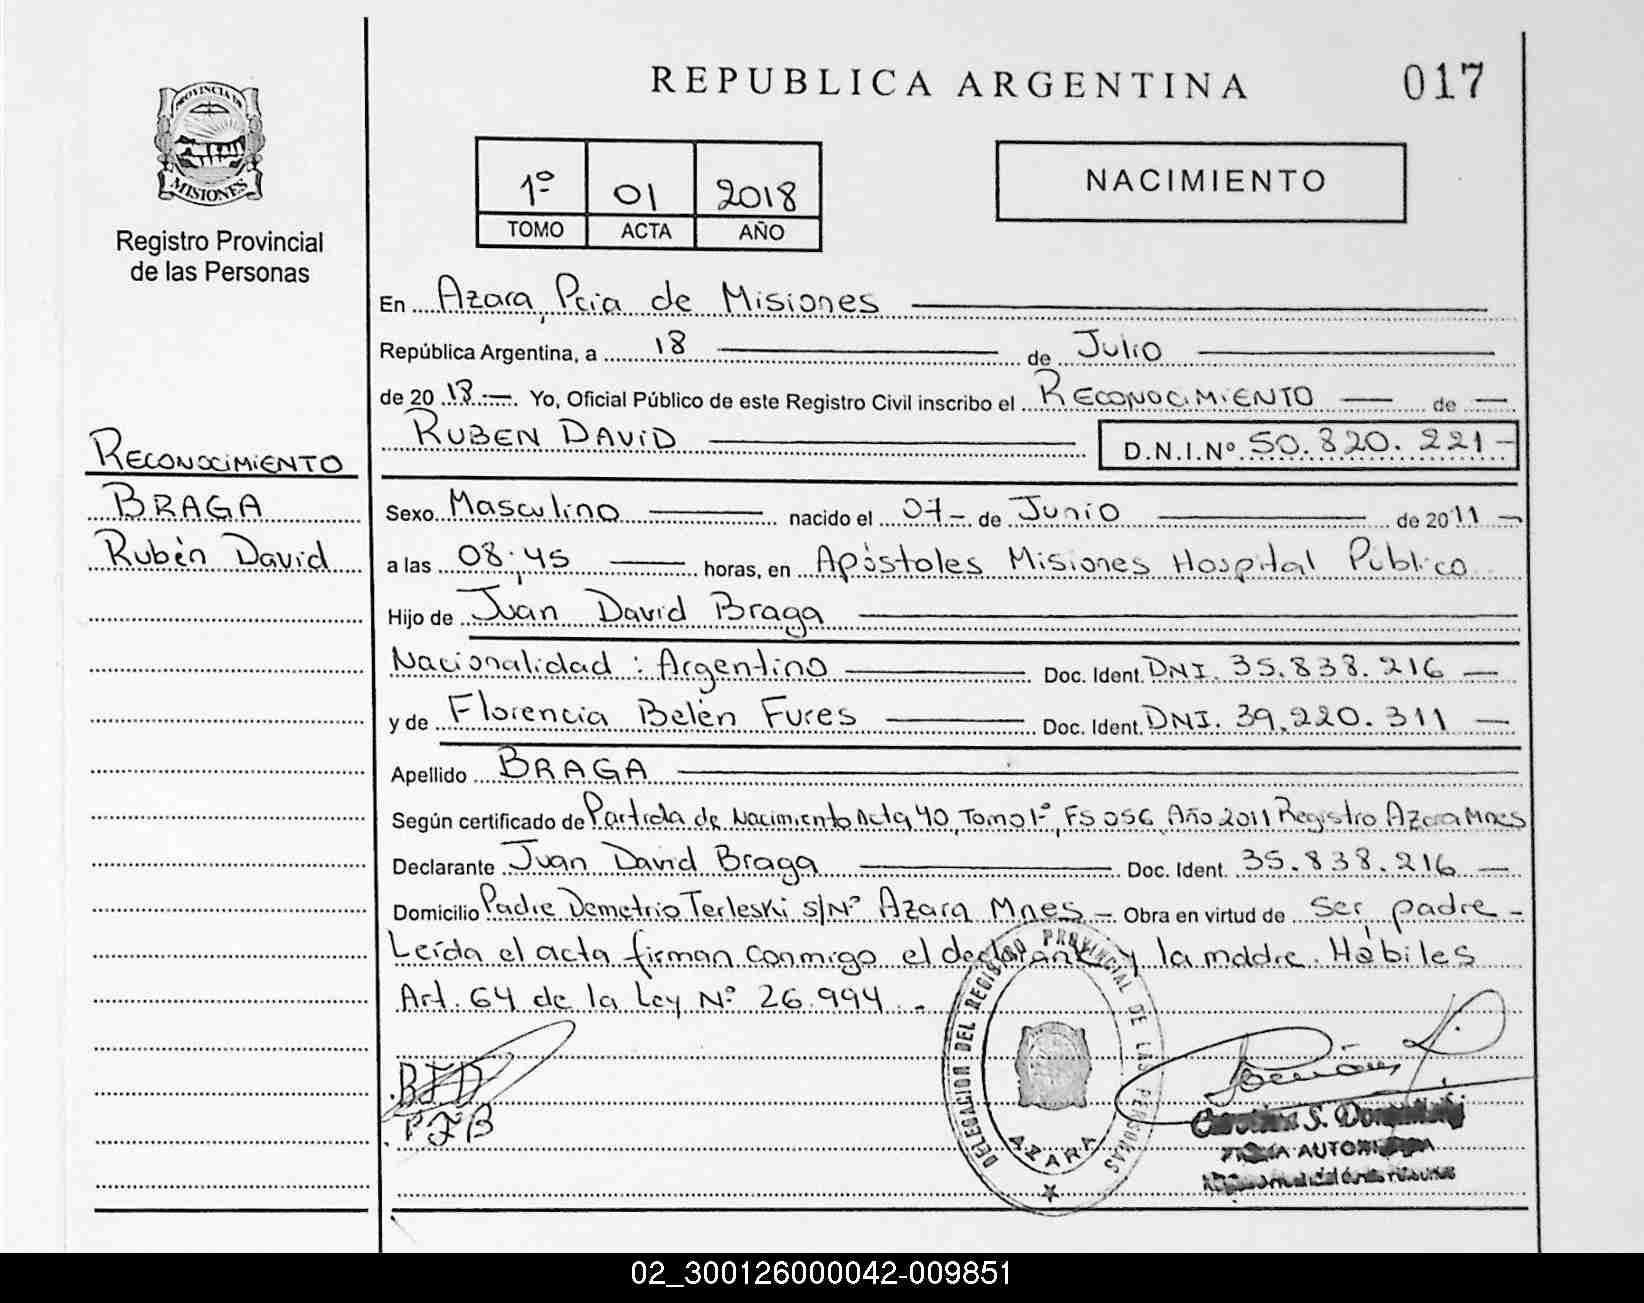 REPUBLICA ARGENTINA
017
PROVINCIA DE
MISIONES
Registro Provincial
de las Personas
1º 01 2018
TOMO ACTA AÑO
NACIMIENTO
En Azara, Pcia de Misiones
República Argentina, a 18 de Julio
de 2018 Yo, Oficial Público de este Registro Civil inscribo el RECONOCIMIENTO de
RUBEN DAVID D.N.I.Nº 50.820.221-
RECONOCIMIENTO
BRAGA
Rubén David
Sexo Masculino nacido el 07- de Junio de 2011
a las 08:45 horas, en Apóstoles Misiones Hospital Público
Hijo de Juan David Braga
Nacionalidad: Argentino Doc. Ident. DNI. 35.838.216
y de Florencia Belén Fures Doc. Ident. DNI. 39.220.311
Apellido BRAGA
Según certificado de Partida de Nacimiento Acta 40, Tomo 1º, Fs 056, Año 2011 Registro Azara Mnes
Declarante Juan David Braga Doc. Ident. 35.838.216
Domicilio Padre Demetrio Terleski s/Nº Azara Mnes - Obra en virtud de ser padre -
Leída el acta firman conmigo el declarante y la madre. Hábiles
Art. 64 de la Ley Nº 26.994.-
BJD
PFB
DELEGACION DEL REGISTRO PROVINCIAL DE LAS PERSONAS
AZARA
S.
02_300126000042-009851